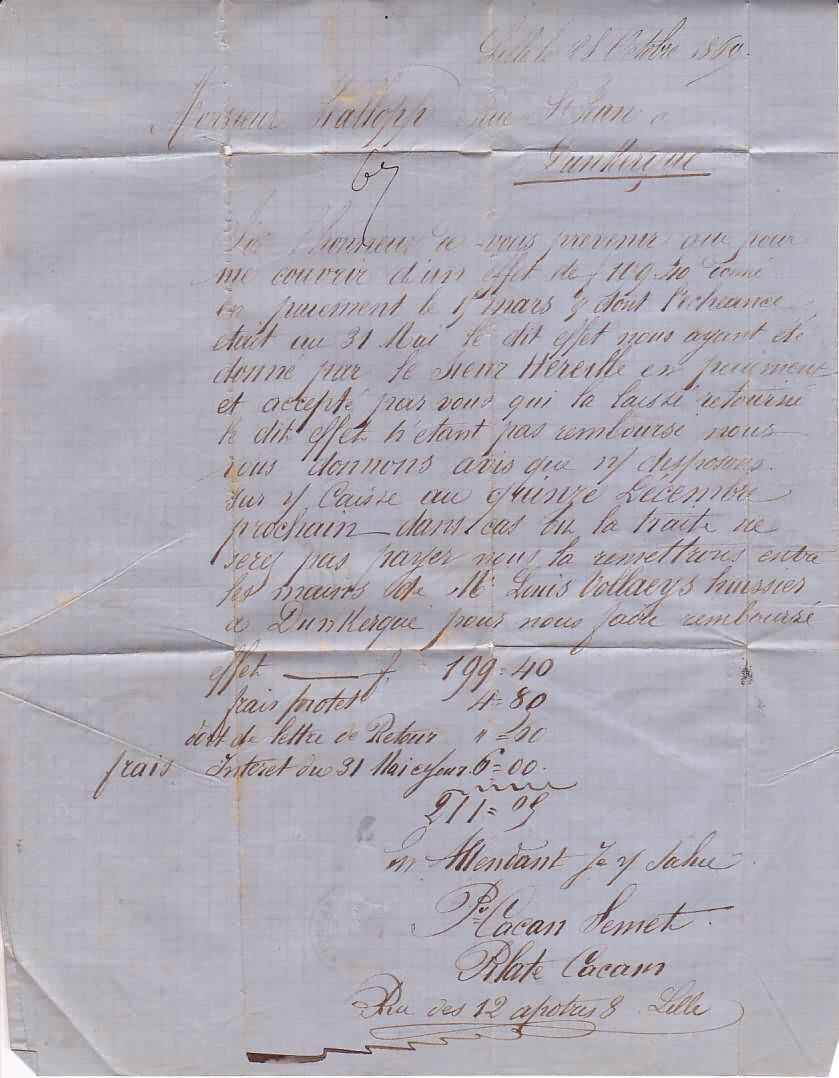 Lille le 28 Octobre 1869.
Monsieur Rue St Jean a
Dunkerque
67
l'honneur de vous prevenir que pour
me couvrir d'un effet de f donné
en paiement le 15 mars y dont l'echeance
etait au 31 Mai le dit effet nous ayant été
donné par le Sieur en paiement
et accepté par vous qui la laissé retourné
le dit effet n'etant pas remboursé nous
vous donnons avis que n/ disposons
sur v/ Caisse au quinze Décembre
prochain dans cas ou la traite ne
serez pas payer nous la remettrons entre
les mains de Mr Louis Vollaeys huissier
a Dunkerque pour nous faire remboursé
effet — f. 199=40
frais protest 4=80
de lettre de Retour
frais Interet du 31 Mai 6=00.
211=
En Attendant Je v/ Salue
Cacan Semet
Plate Cacan
Rue des 12 apotres 8 Lille